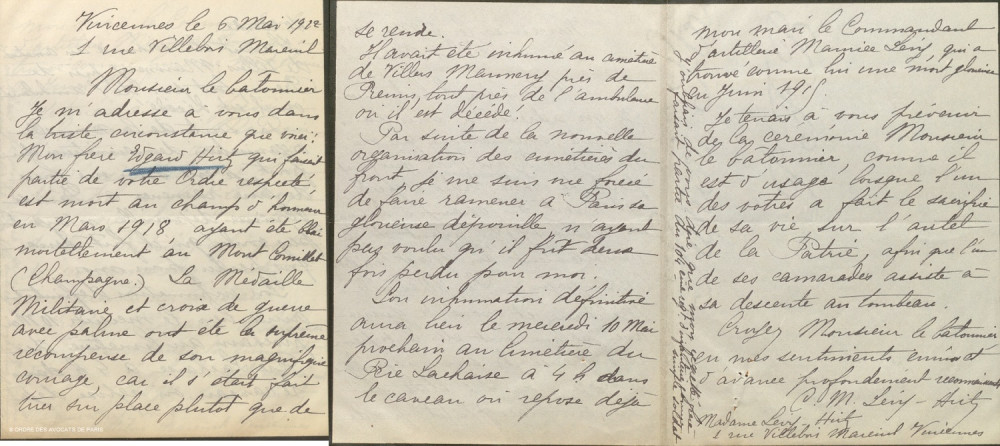 Vincennes le 6 Mai 1922
1 rue Villebois Mareuil
Monsieur le batonnier
Je m'adresse à vous dans
la triste circonstance que voici:
Mon frère Edgard Hirtz qui faisait
partie de votre Ordre respecté,
est mort au champ d'honneur
en Mars 1918 ayant été blessé
mortellement au Mont Cornillet
(Champagne.) La Médaille
Militaire et croix de guerre
avec palme ont été la suprême
récompense de son magnifique
courage, car il s'était fait
tuer sur place plutot que de
© ORDRE DES AVOCATS DE PARIS
se rendre.
Il avait été inhumé au cimetière
de Villers Marmery près de
Reims, tout près de l'ambulance
où il est décédé.
Par suite de la nouvelle
organisation des cimetières du
front je me suis vue forcée
de faire ramener à Paris sa
glorieuse dépouille n'ayant
pas voulu qu'il fut deux
fois perdu pour moi.
Son inhumation définitive
aura lieu le mercredi 10 Mai
prochain au Cimetière du
Père Lachaise à 4 h dans
le caveau où repose déjà
mon mari le Commandant
d'artillerie Maurice Levy qui a
trouvé comme lui une mort glorieuse
en Juin 1915
Je tenais à vous prévenir
de la cérémonie Monsieur
le bâtonnier, comme il
est d'usage lorsque l'un
des votres a fait le sacrifice
de sa vie sur l'autel
de la Patrie, afin que l'un
de ses camarades assiste à
sa descente au tombeau.
Croyez Monsieur le batonnier
en mes sentiments émus et
d'avance profondement reconnaissants
M. Levy-Hirtz
Madame Levy-Hirtz
1 rue Villebois Mareuil Vincennes
J'oubliais de vous dire que mon regretté frère
faisait partie du